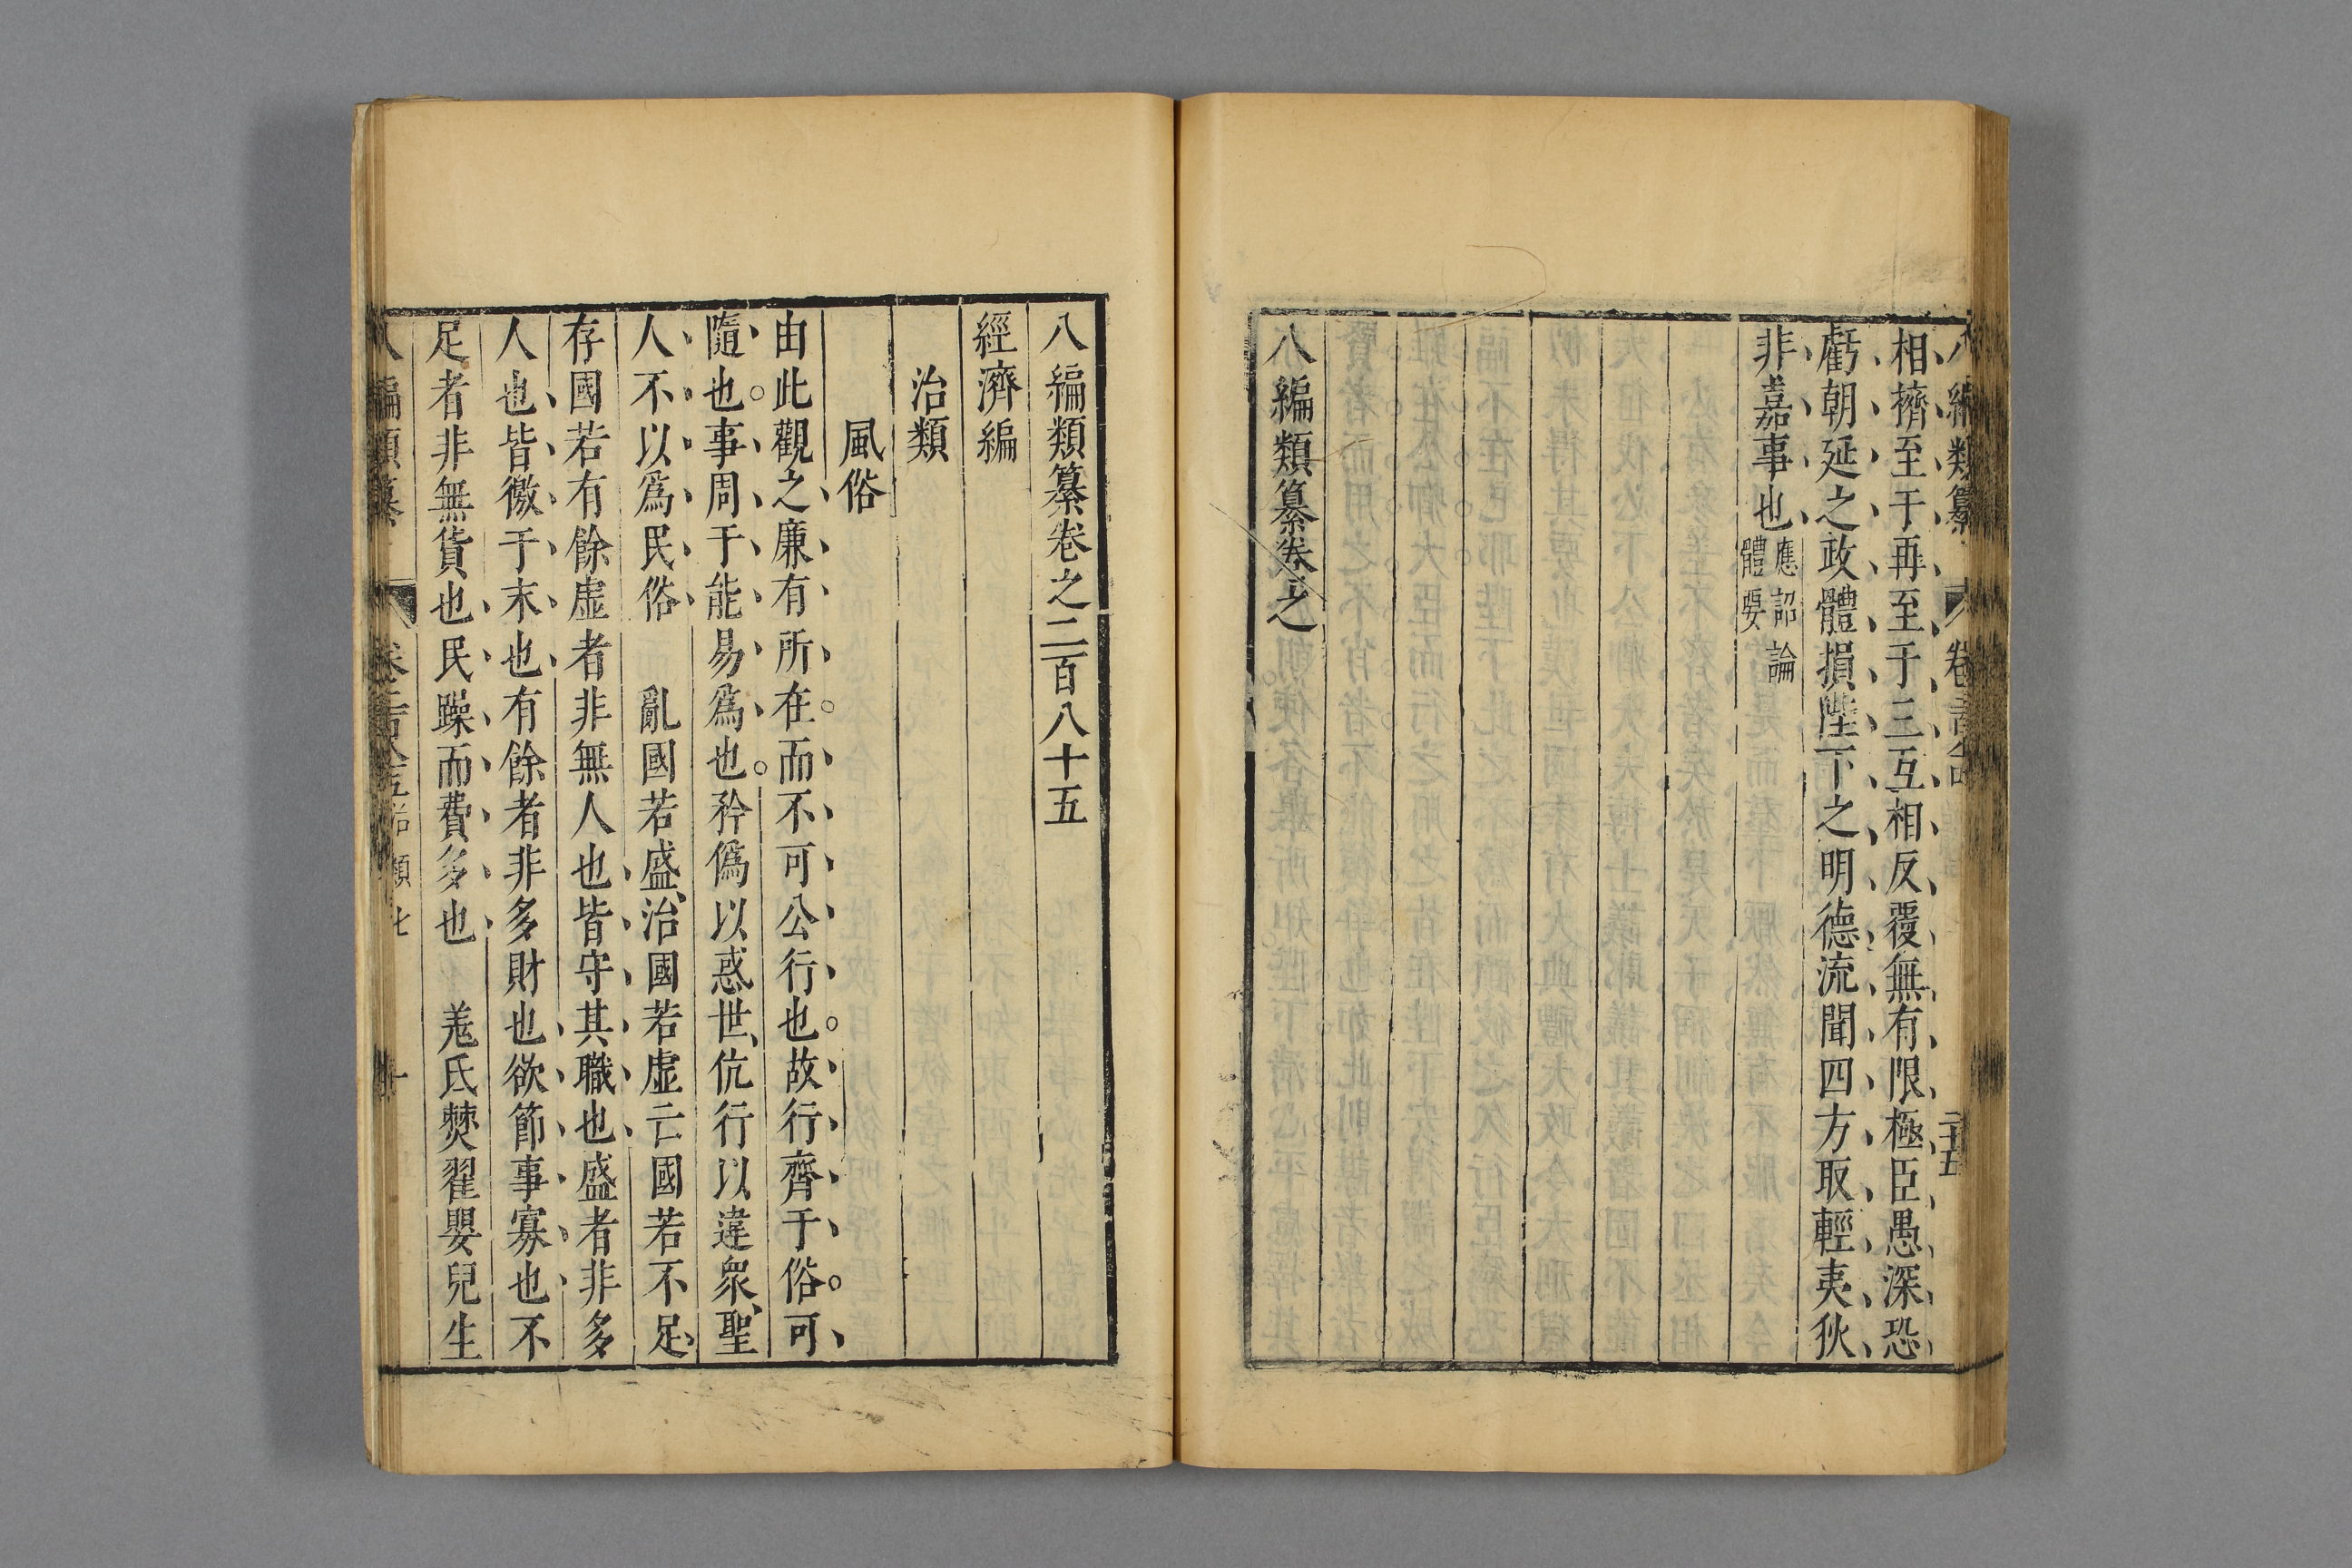 相擠至于再至于三互相反覆無有限極臣愚深恐
虧朝廷之政體損陛下之明德流聞四方取輕夷狄
非嘉事也應詔論
體要
八編類纂卷之
八編類纂卷之二百八十五
經濟編
治類
風俗
由此觀之廉有所在而不可公行也故行齊于俗可
隨也事周于能易爲也矜僞以惑世伉行以違衆聖
人不以爲民俗　亂國若盛治國若虛亡國若不足
存國若有餘虛者非無人也皆守其職也盛者非多
人也皆徼于末也有餘者非多財也欲節事寡也不
足者非無貨也民躁而費多也　羗氏僰翟嬰兒生